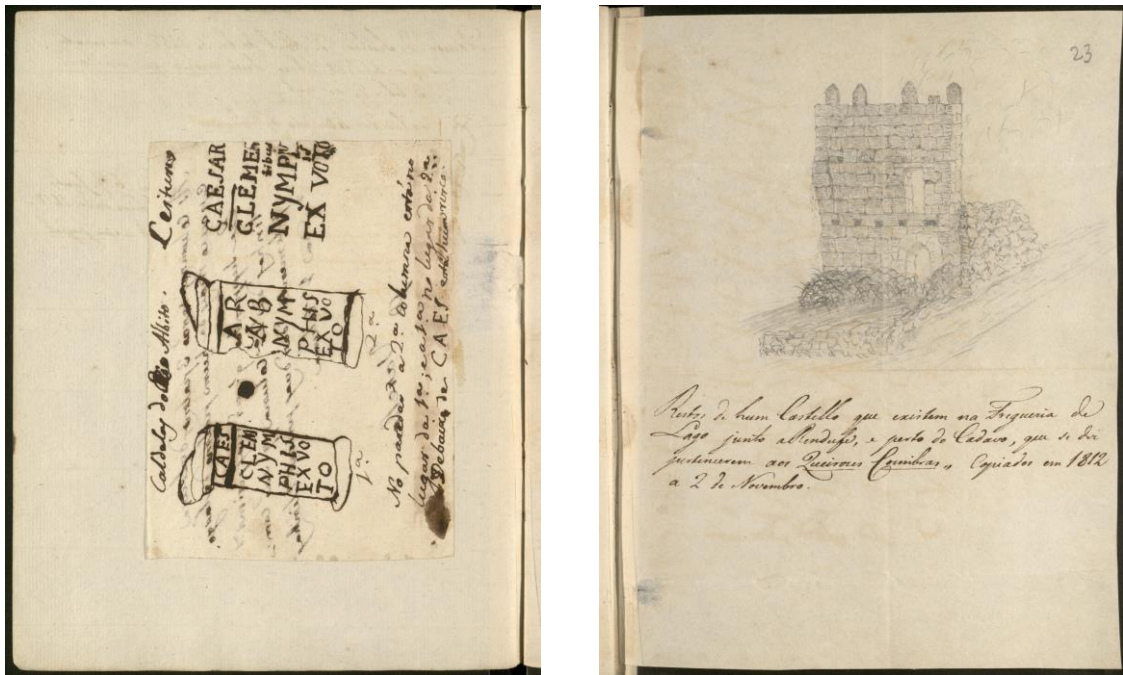 Caldas do Rio Albito.
CAES
CLEM
NYM
PHIS
EX VO
TO
1.ª
AR
NYM
PHIS
EX VO
TO
2.ª
Leitura
CAESAR
CLEME
tibus
NYMPH
is
EX VOTO
No 2.ª columna está no
lugar da 1.ª; e a no lugar da 2.ª
Debaixo de CAES está
23
Restos de hum Castello que existem na Fregueria de
Lago junto a Rendufe, e perto do Cadavo, que se diz
pertencerem aos Queirozes Coimbras,, Copiados em 1812
a 2 de Novembro.